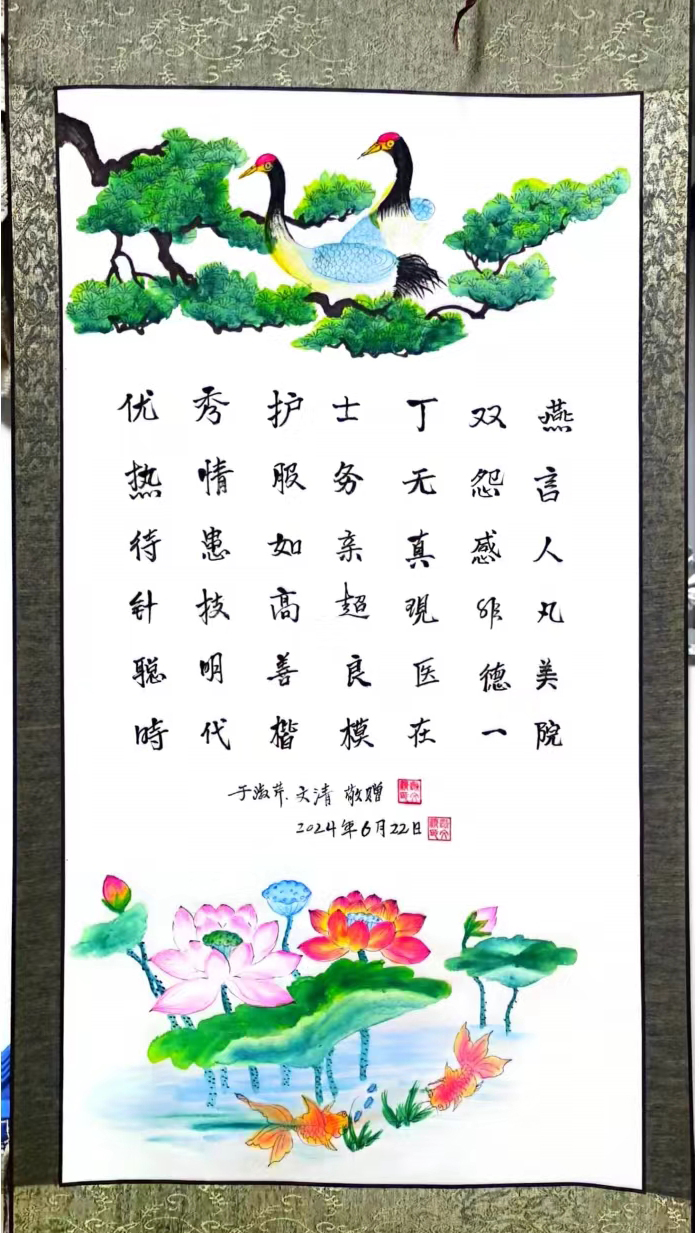 优秀护士丁双燕
热情服务无怨言
待患如亲真感人
针技高超現非凡
聪明善良医德美
時代楷模在一院
于淑芹.文清 敬赠
2024年6月22日